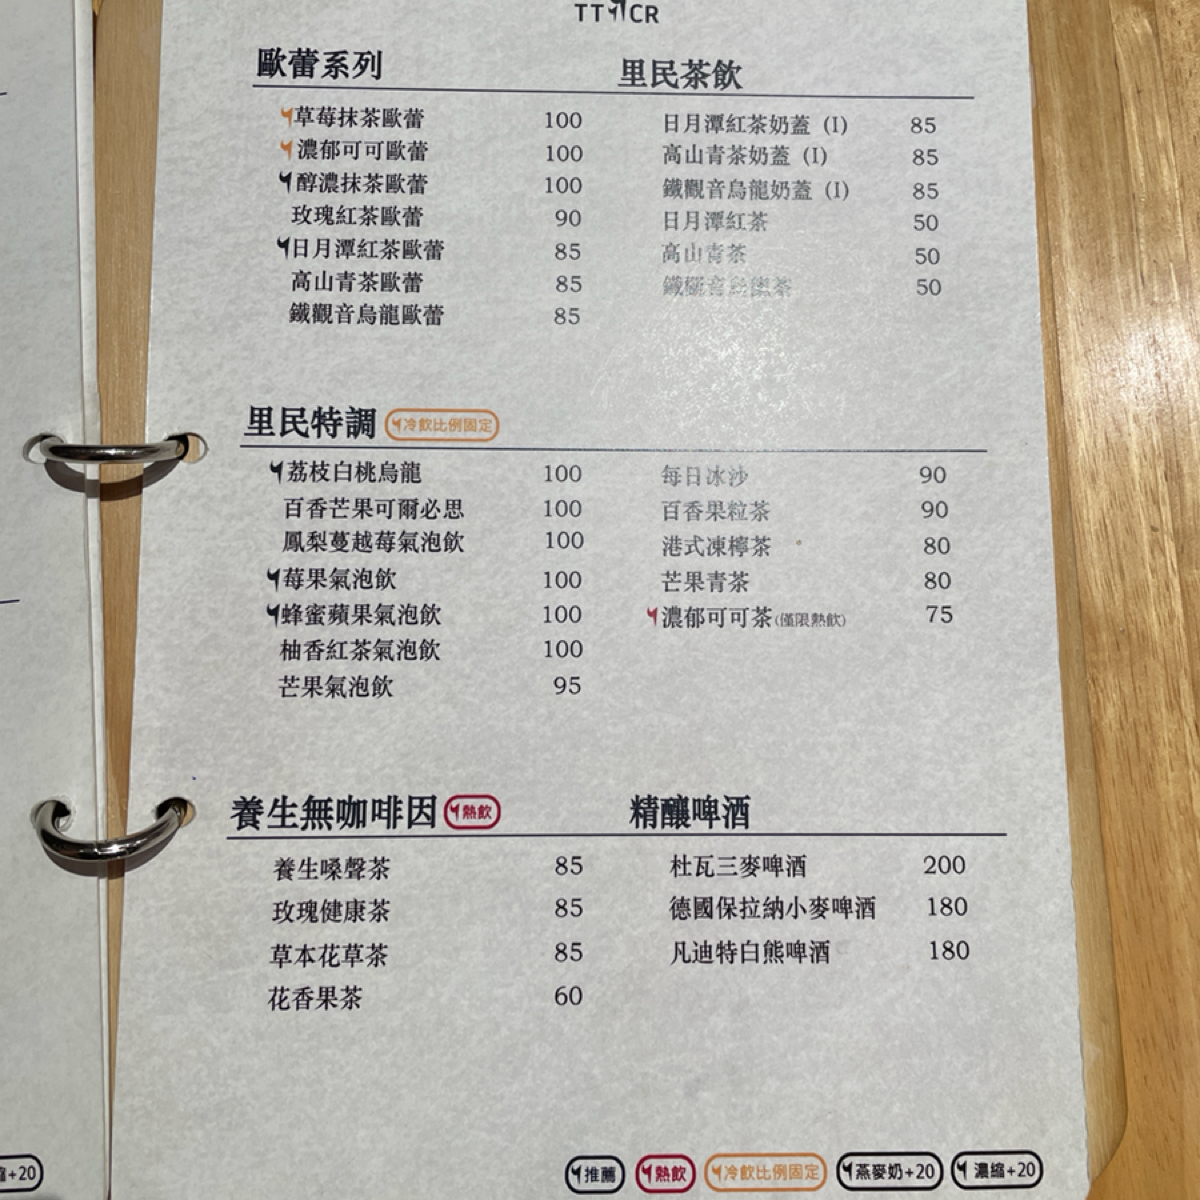 TTCR
歐蕾系列
草莓抹茶歐蕾 100
濃郁可可歐蕾 100
醇濃抹茶歐蕾 100
玫瑰紅茶歐蕾 90
日月潭紅茶歐蕾 85
高山青茶歐蕾 85
鐵觀音烏龍歐蕾 85
里民茶飲
日月潭紅茶奶蓋 (I) 85
高山青茶奶蓋 (I) 85
鐵觀音烏龍奶蓋 (I) 85
日月潭紅茶 50
高山青茶 50
鐵觀音烏龍茶 50
里民特調 冷飲比例固定
荔枝白桃烏龍 100
百香芒果可爾必思 100
鳳梨蔓越莓氣泡飲 100
莓果氣泡飲 100
蜂蜜蘋果氣泡飲 100
柚香紅茶氣泡飲 100
芒果氣泡飲 95
每日冰沙 90
百香果粒茶 90
港式凍檸茶 80
芒果青茶 80
濃郁可可茶(僅限熱飲) 75
養生無咖啡因 熱飲
養生嗓聲茶 85
玫瑰健康茶 85
草本花草茶 85
花香果茶 60
精釀啤酒
杜瓦三麥啤酒 200
德國保拉納小麥啤酒 180
凡迪特白熊啤酒 180
+20
推薦 熱飲 冷飲比例固定 燕麥奶+20 濃縮+20